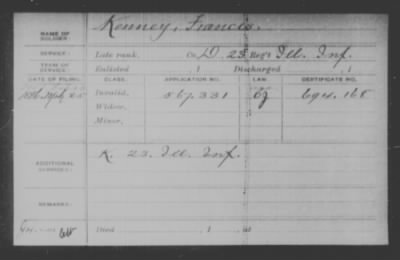 NAME OF SOLDIER: Kenney, Francis.
SERVICE: Late rank, Co. D, 23 Reg't Ill. Inf.
TERM OF SERVICE: Enlisted , 1 Discharged , 1
DATE OF FILING. CLASS. APPLICATION NO. LAW. CERTIFICATE NO.
Invalid, 567.331
Widow,
Minor,
ADDITIONAL SERVICES: K. 23. Ill. Inf.
REMARKS:
Died , 1 , at